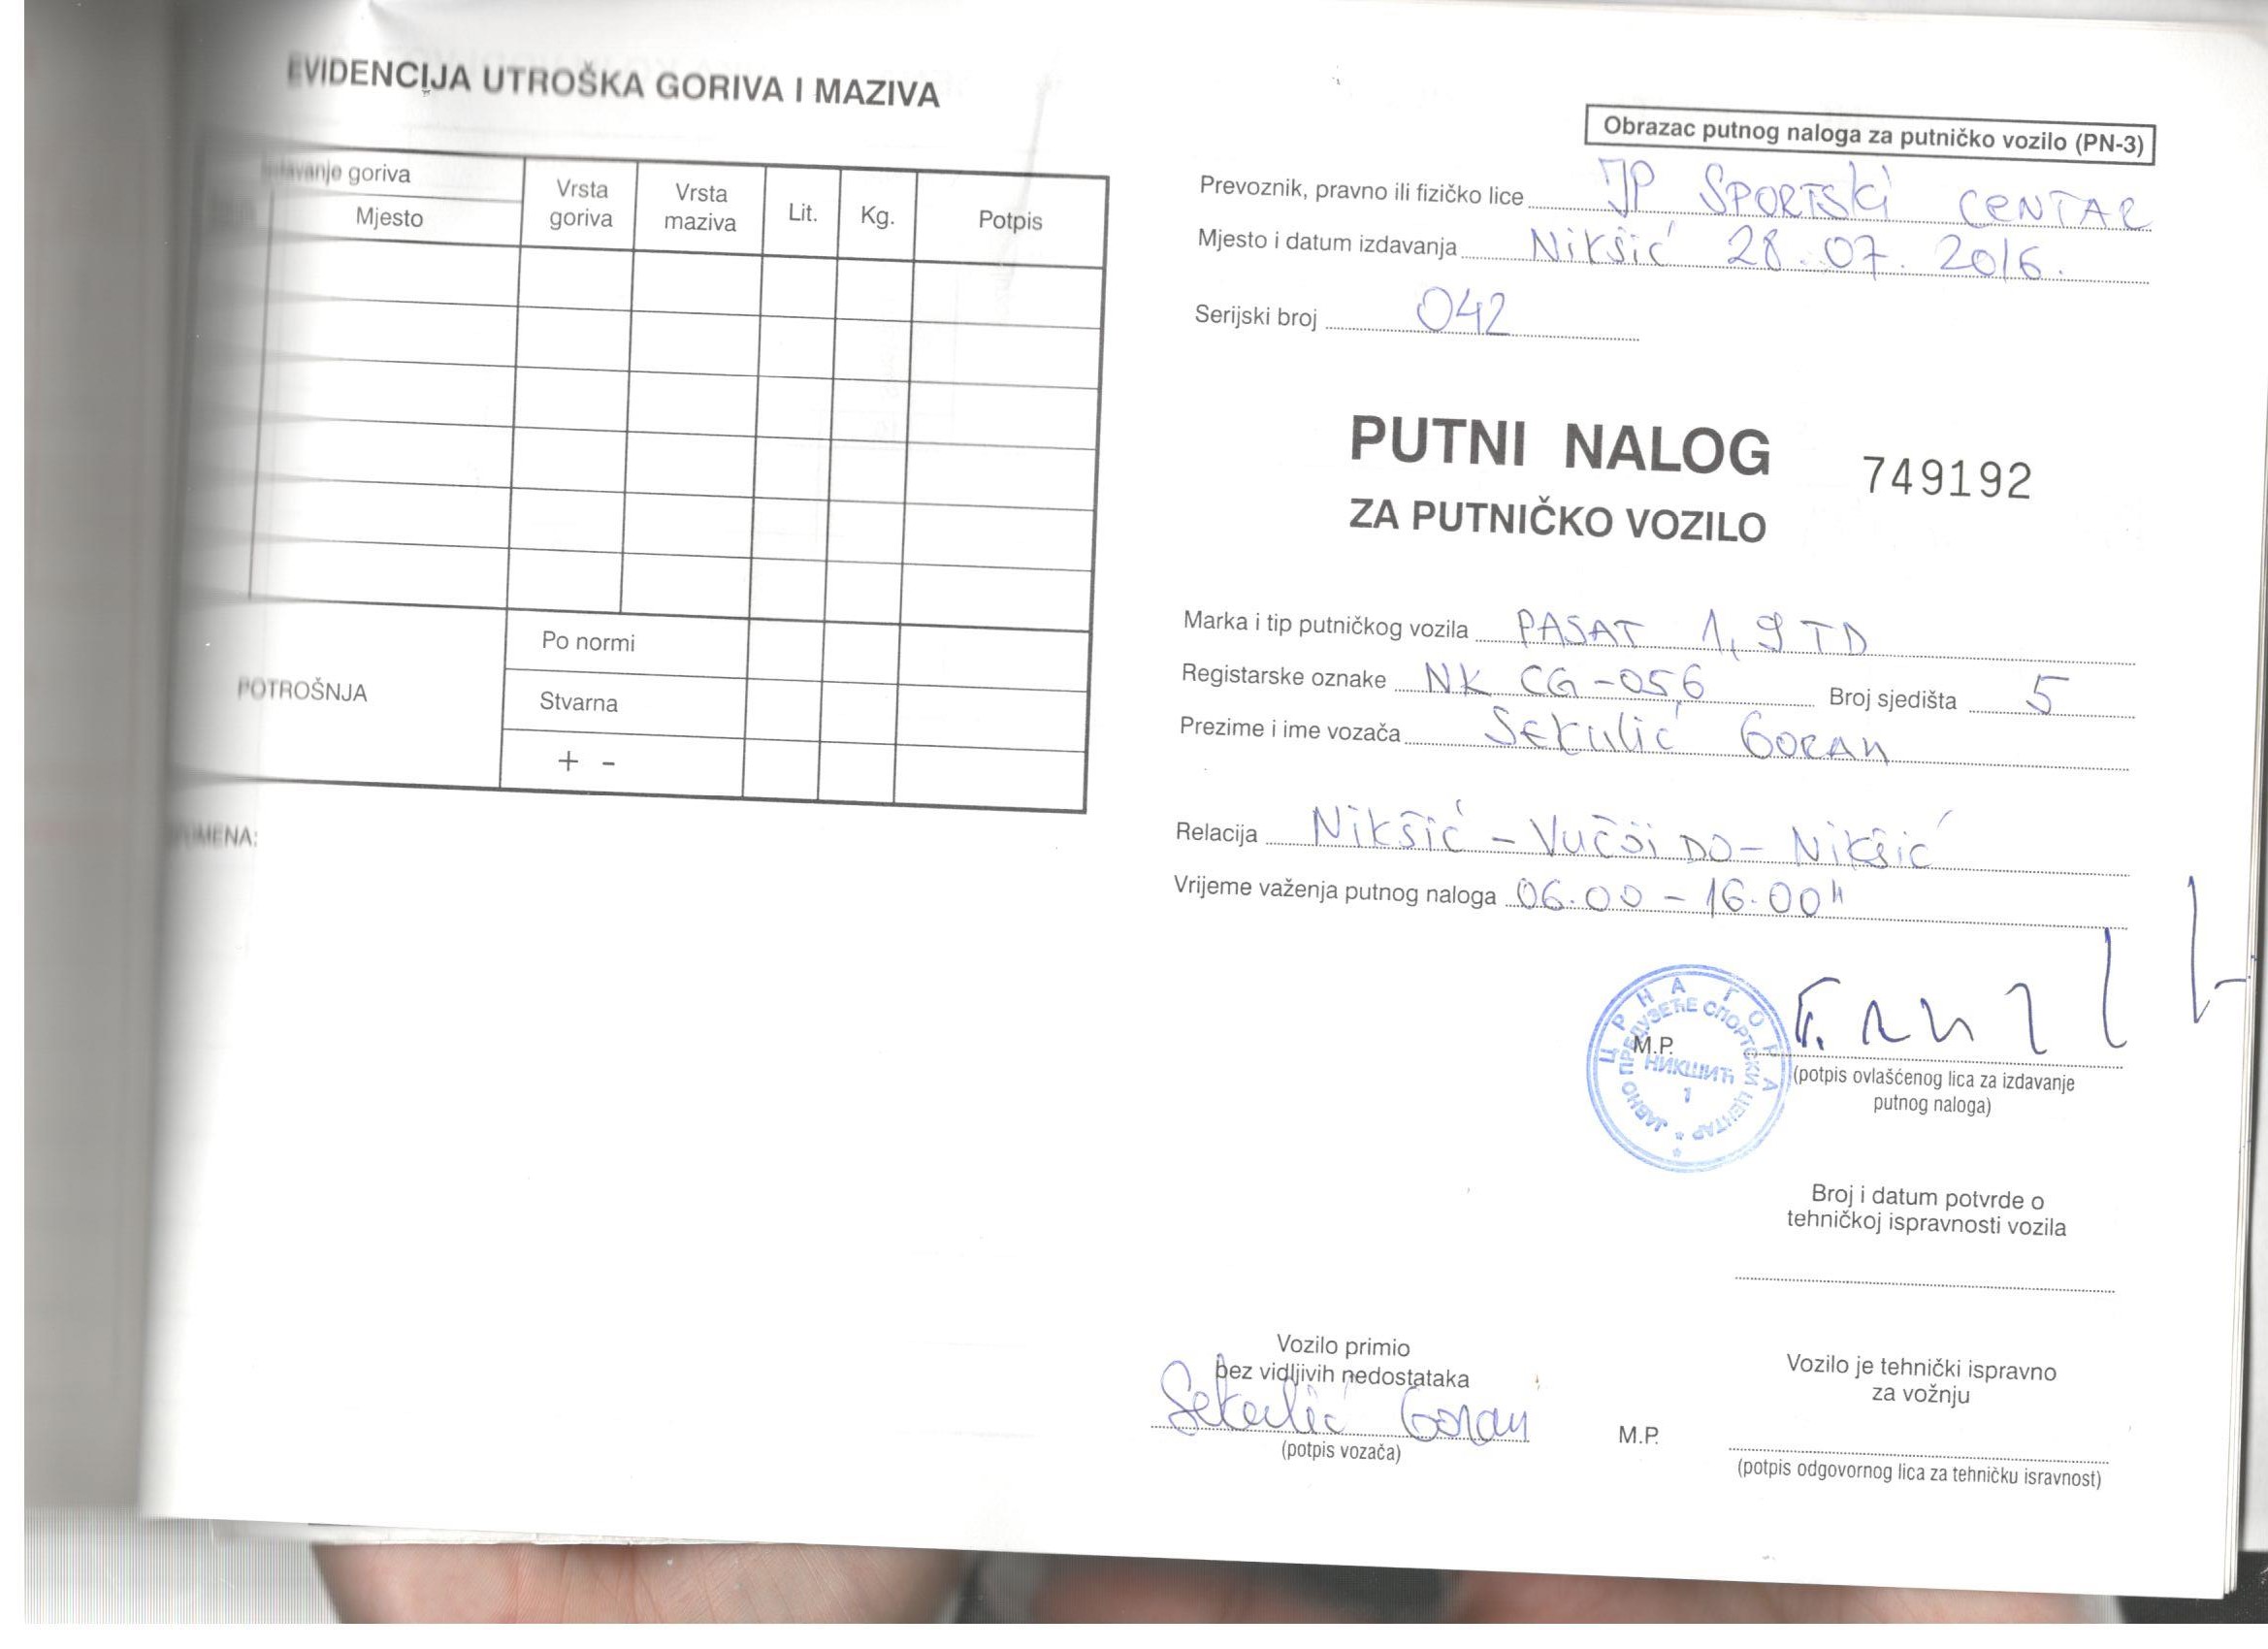 EVIDENCIJA UTROŠKA GORIVA I MAZIVA
goriva
Mjesto
Vrsta goriva
Vrsta maziva
Lit.
Kg.
Potpis
POTROŠNJA
Po normi
Stvarna
+ -
Obrazac putnog naloga za putničko vozilo (PN-3)
Prevoznik, pravno ili fizičko lice JP SPORTSki CENTAR
Mjesto i datum izdavanja Nikšić 28.07.2016.
Serijski broj 042
PUTNI NALOG 749192
ZA PUTNIČKO VOZILO
Marka i tip putničkog vozila PASAT 1,9 TD
Registarske oznake NK CG-056 Broj sjedišta 5
Prezime i ime vozača Sekulić Goran
Relacija Nikšić - Vučji DO - Nikšić
Vrijeme važenja putnog naloga 06.00 - 16.00 h
ЦРНА ГОРА
ЈАВНО ПРЕДУЗЕЋЕ СПОРТСКИ ЦЕНТАР
НИКШИЋ
1
M.P.
(potpis ovlašćenog lica za izdavanje
putnog naloga)
Broj i datum potvrde o
tehničkoj ispravnosti vozila
Vozilo primio
bez vidljivih nedostataka
Sekulić Goran
(potpis vozača)
Vozilo je tehnički ispravno
za vožnju
M.P.
(potpis odgovornog lica za tehničku isravnost)